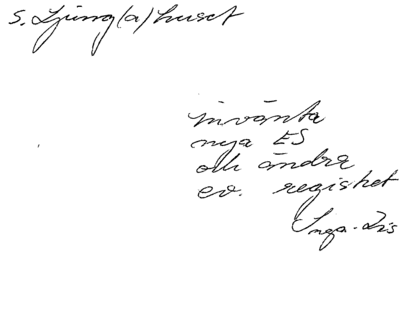 S. Ljung(a)huset
invänta
nya ES
och ändra
ev. registret
Inga-Lis